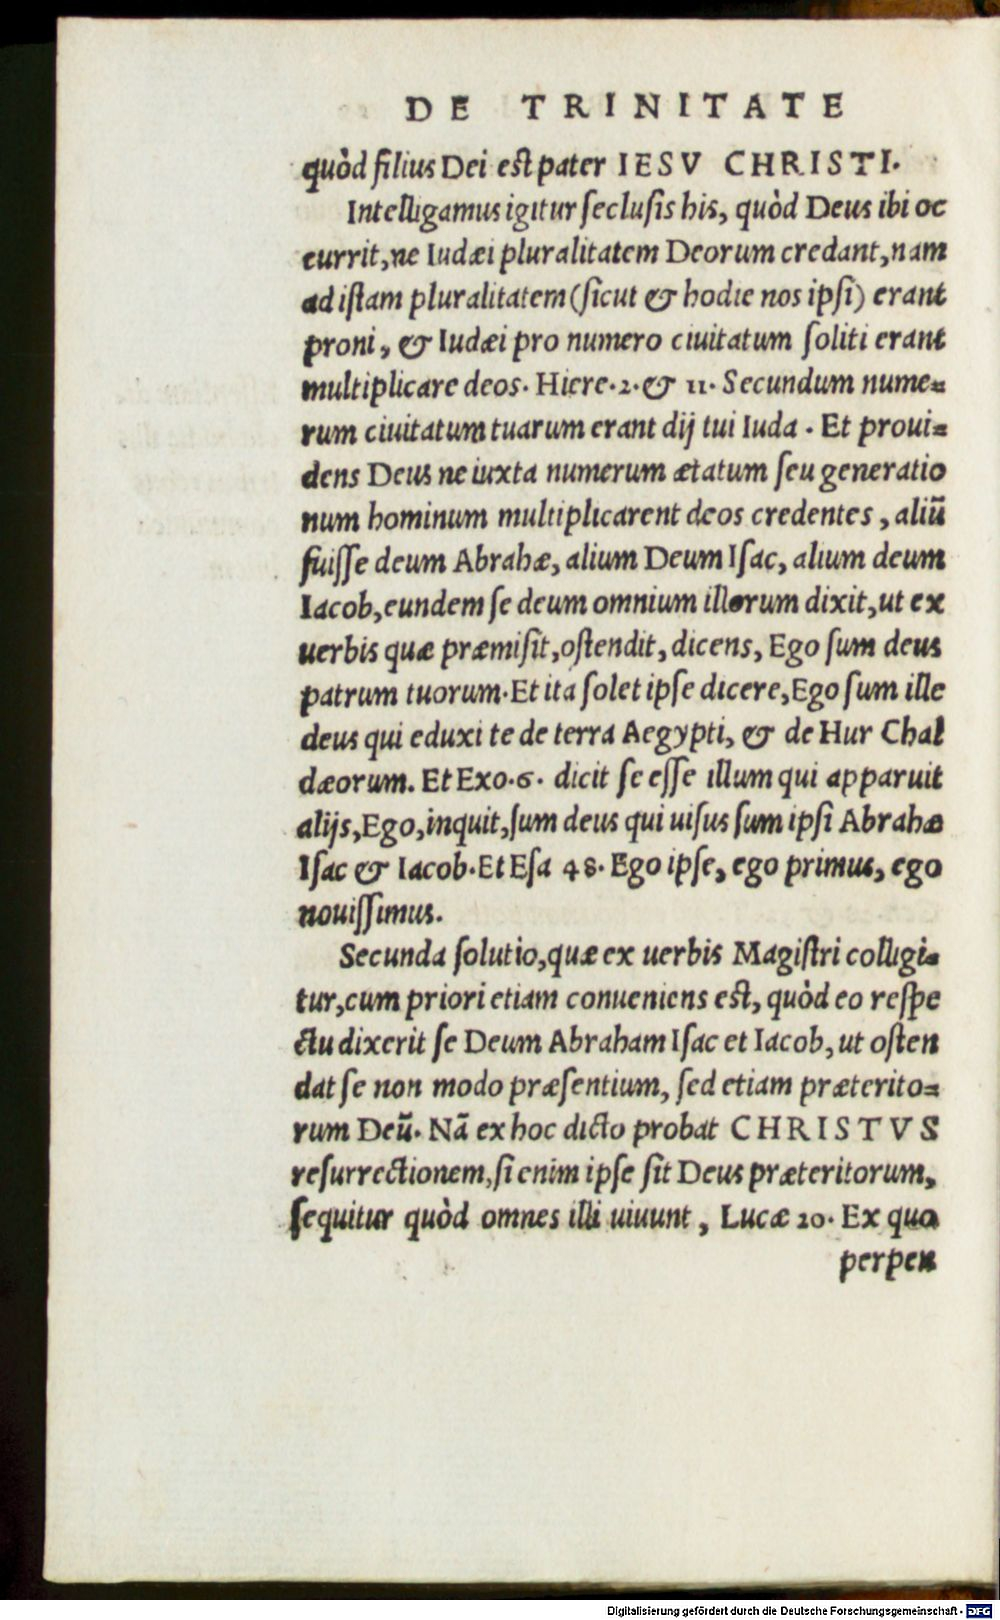 DE TRINITATE
quòd filius Dei est pater IESV CHRISTI.
Intelligamus igitur seclusis his, quòd Deus ibi oc
currit, ne Iudæi pluralitatem Deorum credant, nam
ad istam pluralitatem (sicut & hodie nos ipsi) erant
proni, & Iudæi pro numero ciuitatum soliti erant
multiplicare deos. Hiere. 2. & 11. Secundum nume=
rum ciuitatum tuarum erant dij tui Iuda. Et proui=
dens Deus ne iuxta numerum ætatum seu generatio
num hominum multiplicarent deos credentes, aliũ
fuisse deum Abrahæ, alium Deum Isac, alium deum
Iacob, eundem se deum omnium illorum dixit, ut ex
uerbis quæ præmisit, ostendit, dicens, Ego sum deus
patrum tuorum. Et ita solet ipse dicere, Ego sum ille
deus qui eduxi te de terra Aegypti, & de Hur Chal
dæorum. Et Exo. 6. dicit se esse illum qui apparuit
alijs, Ego, inquit, sum deus qui uisus sum ipsi Abrahæ
Isac & Iacob. Et Esa 48. Ego ipse, ego primus, ego
nouissimus.
Secunda solutio, quæ ex uerbis Magistri colligi=
tur, cum priori etiam conueniens est, quòd eo respe
ctu dixerit se Deum Abraham Isac et Iacob, ut osten
dat se non modo præsentium, sed etiam præterito=
rum Deũ. Nã ex hoc dicto probat CHRISTVS
resurrectionem, si enim ipse sit Deus præteritorum,
sequitur quòd omnes illi uiuunt, Lucæ 20. Ex quo
perpen
Digitalisierung gefördert durch die Deutsche Forschungsgemeinschaft - DFG